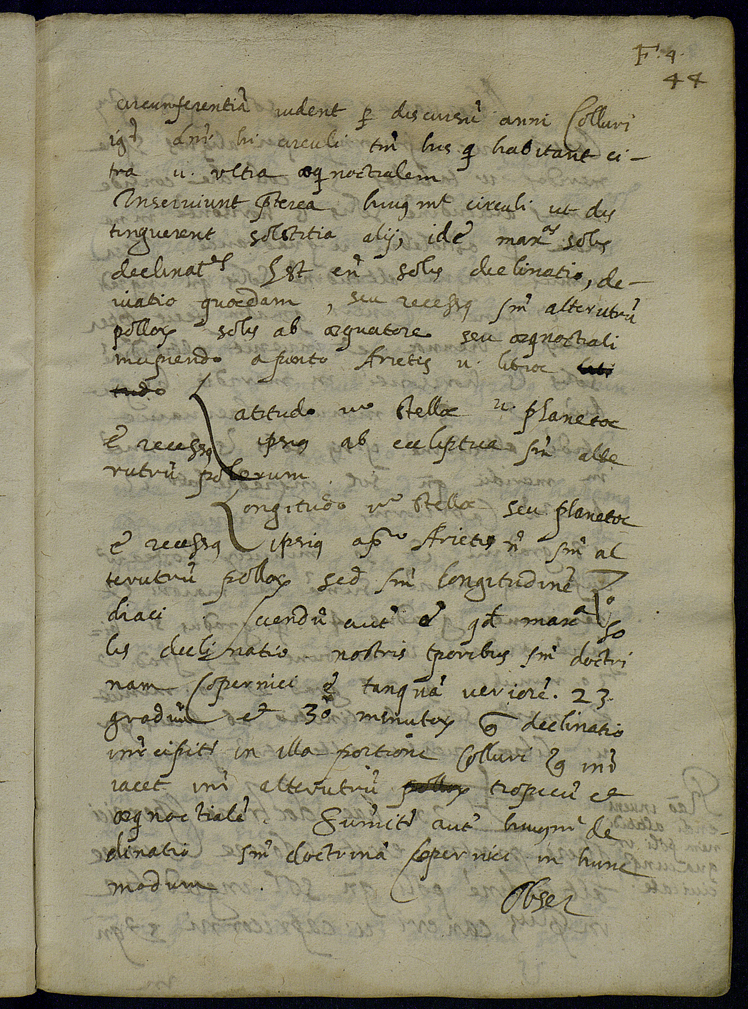 F. 4.
44
circumferentiā vident ꝑ discursū anni Colluri
igr̄ dnr̄ hi circuli tm̄ his q̄ habitant ci-
tra u. ultra æq̄noctialem
Inserviunt p̄terea huiꝰmī circuli ut dis
tinguerent solstitia alij, idē maxᵃˢ solis
declinatᵉˢ Est en̄ solis declinatio, de-
viatio quædam, seu recessꝰ sm̄ alterutrū
polloꝝ solis ab æquatore seu æq̄noctiali
incipiendo a punto Arietis u. libræ lati
tudo
Latitudo vᵒ stellæ u. planetæ
ē recessꝰ ipsiꝰ ab ecliptica sm̄ alte
rutrū polerum.
Longitudo vᵒ stellæ seu planetæ
ē recessꝰ ipsiꝰ a pᵒ Arietis n̄ sm̄ al
terutrū polloꝝ sed sm̄ longitudinē Zo
diaci Sciendū aut̄ ē qd̄ maxᵃ so
lis declinatio nostris tꝑoribus sm̄ doctri
nam Copernici ē tanquā veriorē. 23.
gradum et 30 minutoꝝ declinatio
in illa portione Colluri q̄ int̄
iacet int̄ alterutrū polloꝝ tropicū et
æq̄noctialē. Sumit̄ aut̄ huiꝰmī de
clinatio sm̄ doctrinā Copernici in hunc
modum.
Obser